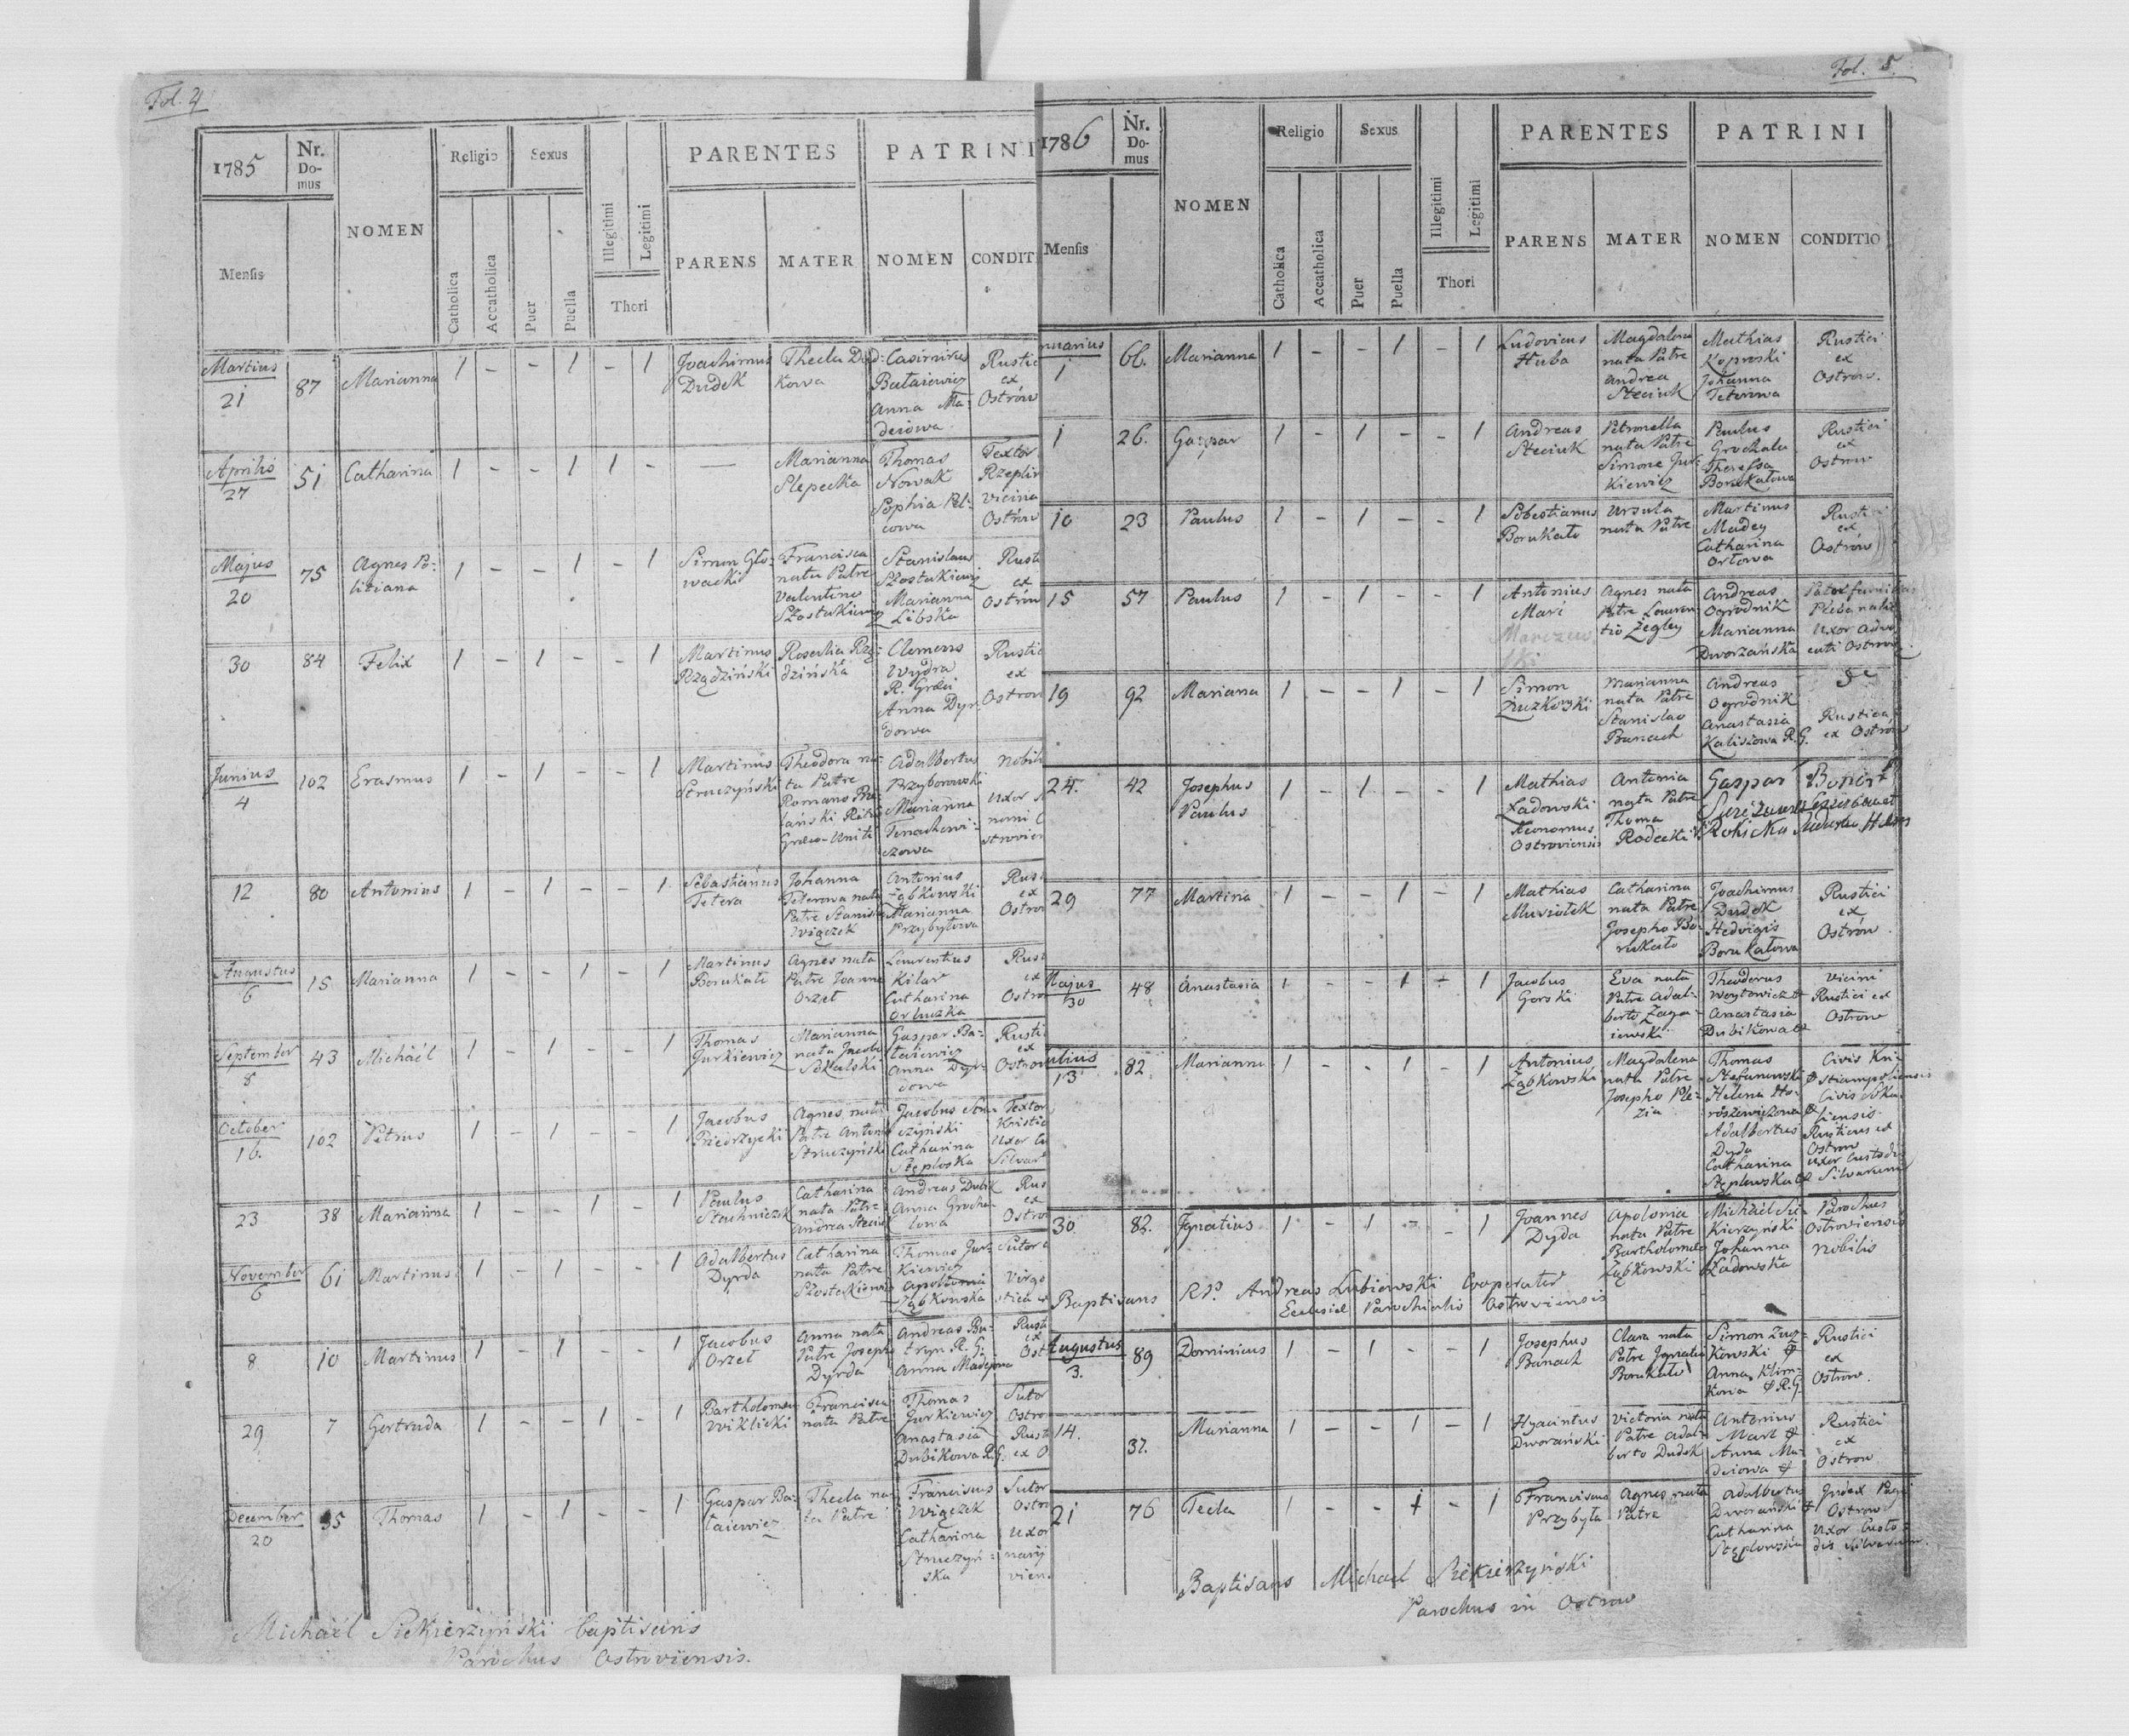 Fol. 4
1785
Nr. Do-mus
NOMEN
Religio
Sexus
Illegitimi
Legitimi
PARENTES
PATRINI
Mensis
Catholica
Accatholica
Puer
Puella
Thori
PARENS
MATER
NOMEN
CONDIT
Martius 21 87 Marianna 1 - - 1 - 1
Joachimus Dudek
Thecla Dud: Kowa
Casimirus Bałaiewicz
Anna Ma: deiowa
Rustic ex Ostrów
Aprilis 27 51 Catharina 1 - - 1 1 -
Marianna Slepecka
Thomas Nowak
Sophia
Textor
vicina
Ostrów
Majus 20 75 Agnes Po: litiana 1 - - 1 - 1
Simon Gło: wacki
Francisca nata Patre Valentino Szostakiewicz
Stanislaus Szostakiewicz
Marianna Libska
Rusti ex Ostrów
30 84 Felix 1 - 1 - - 1
Martinus Rządziński
Rosalia Rzą: dzińska
Clemens Wydra R. Graeci
Anna Dyr: dowa
Rustic ex Ostrow
Junius 4 102 Erasmus 1 - 1 - - 1
Martinus Struczyński
Theodora na: ta Patre Romano
Graeco Uniti
Adalbertus Przyborowski
Marianna
Nobili
Uxor
12 80 Antonius 1 - 1 - - 1
Sebastianus Tetera
Johanna Teterowa nata Patre Stanisl Wiączek
Antonius Ząbkowski
Marianna Przybyłowa
Rus ex Ostrow
Augustus 6 15 Marianna 1 - - 1 - 1
Martinus Borukało
Agnes nata Patre Joanne Orzeł
Laurentius Kilar
Catharina
Rust ex Ostro
September 8 43 Michaël 1 - 1 - - 1
Thomas Jurkiewicz
Marianna nata Jacobo Sokalski
Gaspar Ba: łaiewicz
Anna Dyr: dowa
Rusti ex Ostrow
October 16. 102 Petrus 1 - 1 - - 1
Jacobus Biedrzycki
Agnes nata Patre Antoni Struczyński
Jacobus Stru czyński
Catharina Stęploska
Textor
Uxor Cu
Silvar
23 38 Marianna 1 - - 1 - 1
Paulus Stachniczek
Catharina nata Patre Andrea Steciuk
Andreas Dubik
Anna Grocha: lowa
Rus ex Ostro
November 6 61 Martinus 1 - 1 - - 1
Adalbertus Dyrda
Catharina nata Patre Szostakiewicz
Thomas Jur: Kiewicz
Apollonia Ząbkowska
Sutor
Virgo
8 10 Martinus 1 - 1 - - 1
Jacobus Orzeł
Anna nata Patre Josepho Dyrda
Andreas Bu: tryn R. G.
Anna Madejowa
Rusti ex Ost
29 7 Gertruda 1 - - 1 - 1
Bartholomeus Wiklicki
Francisca nata Patre
Thomas Jurkiewicz
Anastasia Dubikowa R. G.
Sutor Ostro
Rust ex O
December 20 35 Thomas 1 - 1 - - 1
Gaspar Ba: łaiewicz
Thecla na: ta Patre
Franciscus Wiączek
Catharina Struczyń: ska
Sutor Ostro
Uxor
Michaël Siekierzyński Baptisans
Parochus Ostroviensis.
Fol. 5.
1786
Nr. Do-mus
NOMEN
Religio
Sexus
Illegitimi
Legitimi
PARENTES
PATRINI
Mensis
Catholica
Accatholica
Puer
Puella
Thori
PARENS
MATER
NOMEN
CONDITIO
nuarius 1 66. Marianna 1 - - 1 - 1
Ludovicus Huba
Magdalena nata Patre Andrea Steciuk
Mathias Koproski
Johanna Teterowa
Rustici ex Ostrów.
1 26. Gaspar 1 - 1 - - 1
Andreas Steciuk
Petronella nata Patre Simone Jur: Kiewicz
Paulus Grochala
Theressa Borukałowa
Rustici ex Ostrow
10 23 Paulus 1 - 1 - - 1
Sebestianus Borukało
Ursula nata Patre
Martinus Madey
Catharina Orłowa
Rustici ex Ostrów
15 57 Paulus 1 - 1 - - 1
Antonius Marć
Marczew ski
Agnes nata Patre Lauren tio Żegley
Andreas Ogrodnik
Marianna Dworzańska
Pater familias
Uxor Advo cati Ostrow.
19 92 Mariana 1 - - 1 - 1
Simon Żuczkowski
Marianna nata Patre Stanislao Banach
Andreas Ogrodnik
Anastasia Kalisiowa R. G.
Rustica ex Ostrów
24. 42 Josephus Paulus 1 - 1 - - 1
Mathias Ładowski Aeconomus Ostroviensis
Antonia nata Patre Thoma Radecki
Gaspar
Rokicka
29 77 Martina 1 - - 1 - 1
Mathias Musiołek
Catharina nata Patre Josepho Bo: rukało
Joachimus Dudek
Hedvigis Borukałowa
Rustici ex Ostrów
Majus 30 48 Anastasia 1 - - 1 - 1
Jacobus Gorski
Eva nata Patre Adal: berto
Theodorus Woytowicz
Anastasia Dubikowa
Vicini Rustici ex Ostrow
ulius 13 82. Marianna 1 - - 1 - 1
Antonius Ząbkowski
Magdalena nata Patre Josepho
Thomas Stefanowski
Helena
Adalbertus Dyda
Catharina Stęplowska
Civis
Civis
Rusticus ex Ostrow
Uxor Custodis Silvarum
30 82. Ignatius 1 - 1 - - 1
Joannes Dyda
Apolonia nata Patre Bartholomeo Ząbkowski
Michaël Sie Kierzyński
Johanna Ładowska
Parochus Ostroviensis
Nobilis
Baptisans R.D. Andreas Lubiewski Cooperator
Ecclesiæ Parochialis Ostroviensis
Augustus 3. 89 Dominicus 1 - 1 - - 1
Josephus Banach
Clara nata Patre Ignatio Borukało
Simon Żucz: Kowski
Anna Klim: Kowa R. G.
Rustici ex Ostrow.
14. 37. Marianna 1 - - 1 - 1
Hyacintus Dworański
Victoria nata Patre Adal: berto Dudek
Antonius Marć
Anna Ma: deiowa
Rustici ex Ostrow
21 76 Tecla 1 - - 1 - 1
Franciscus Przybyła
Agnes nata Patre
Adalbertus Dworański
Catharina Stęplowska
Judex Pagi Ostrow
Uxor Custo: dis Silvarum.
Baptisans Michael Siekierzyński
Parochus in Ostrow